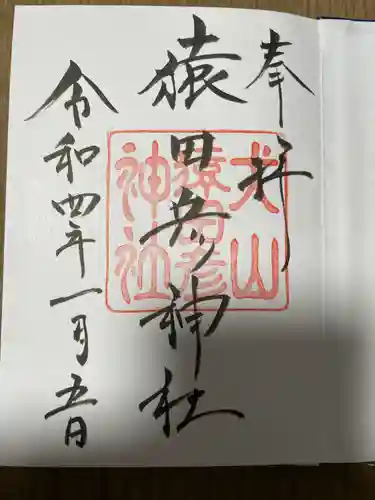 奉拝
犬山
猿田彦
神社
猿田彦神社
令和四年一月五日